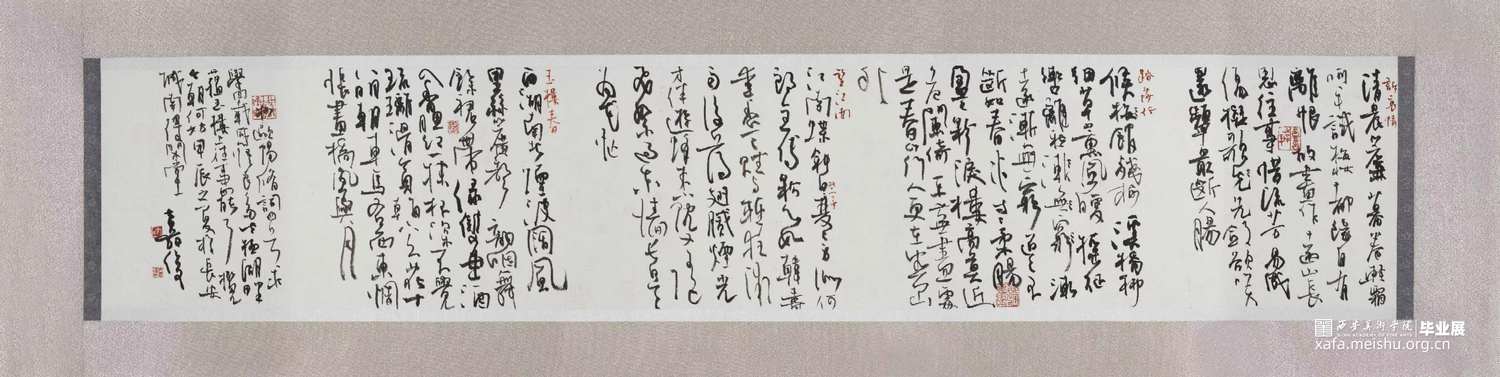 訴衷情
清晨簾幕卷輕霜
呵手試梅妝都緣自有
離恨故畫作遠山長
思往事惜流芳易成
傷擬歌先斂欲笑
還顰最斷人腸
踏莎行
候館梅殘溪橋柳
細草薰風暖搖征
轡離愁漸遠漸無窮
迢迢不
斷如春水寸寸柔腸
盈盈粉淚樓高莫近
危闌倚平蕪盡處
是春山行人更在春山
外
望江南
江南蝶斜日一雙雙身似何
郎全傅粉心如韓壽
愛偷香天賦與輕狂微
雨後薄翅膩煙光
才伴遊蜂來小院又隨
飛絮過東牆長是
為花忙
玉樓春
西湖南北煙波闊風
里絲簧聲韻咽舞
餘裙帶綠雙垂酒
入香腮紅一抹杯深不覺
琉璃滑貪看六幺花十
八明朝車馬各西東惆
悵畫橋風與月
歐陽脩詞四首
甲辰之夏於長安
城南得閒堂
西安美術學院 毕业展
XI'AN ACADEMY OF FINE ARTS
xafa.meishu.org.cn